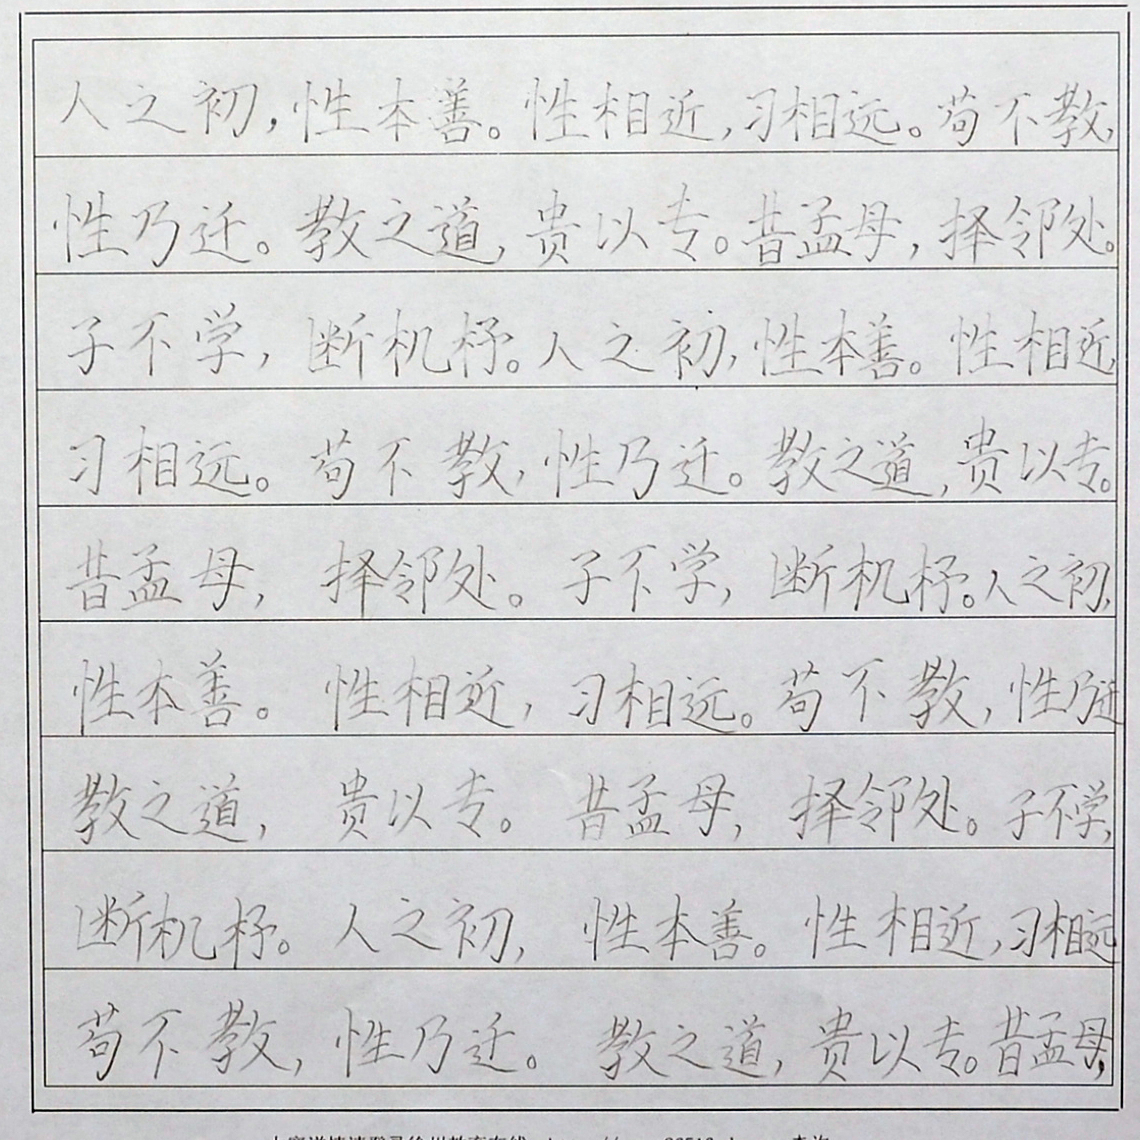 人之初，性本善。性相近，习相远。苟不教，
性乃迁。教之道，贵以专。昔孟母，择邻处。
子不学，断机杼。人之初，性本善。性相近
习相远。苟不教，性乃迁。教之道，贵以专。
昔孟母，择邻处。子不学，断机杼。人之初，
性本善。性相近，习相远。苟不教，性乃迁
教之道，贵以专。昔孟母，择邻处。子不学，
断机杼。人之初，性本善。性相近，习相远
苟不教，性乃迁。教之道，贵以专。昔孟母，